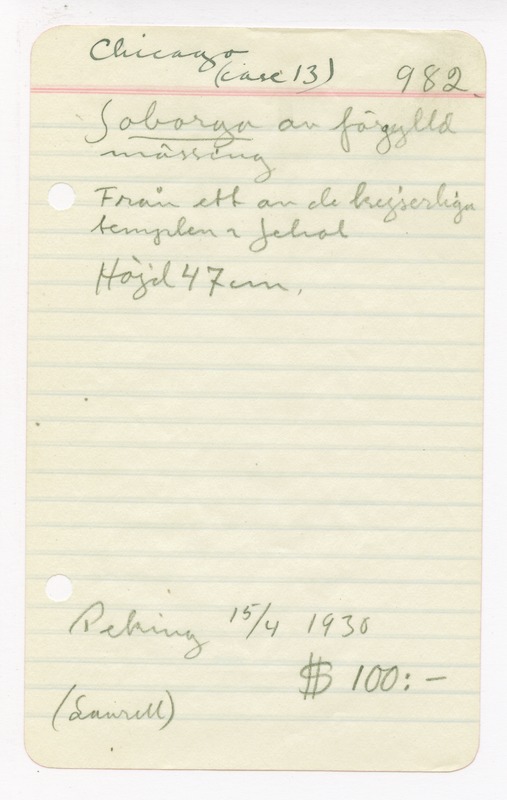 Chicago
(case 13)
982.
Soborga av förgylld
mässing
Från ett av de kejserliga
templen i Jehol
Höjd 47 cm.
Peking 15/4 1930
$ 100:-
(Laurell)